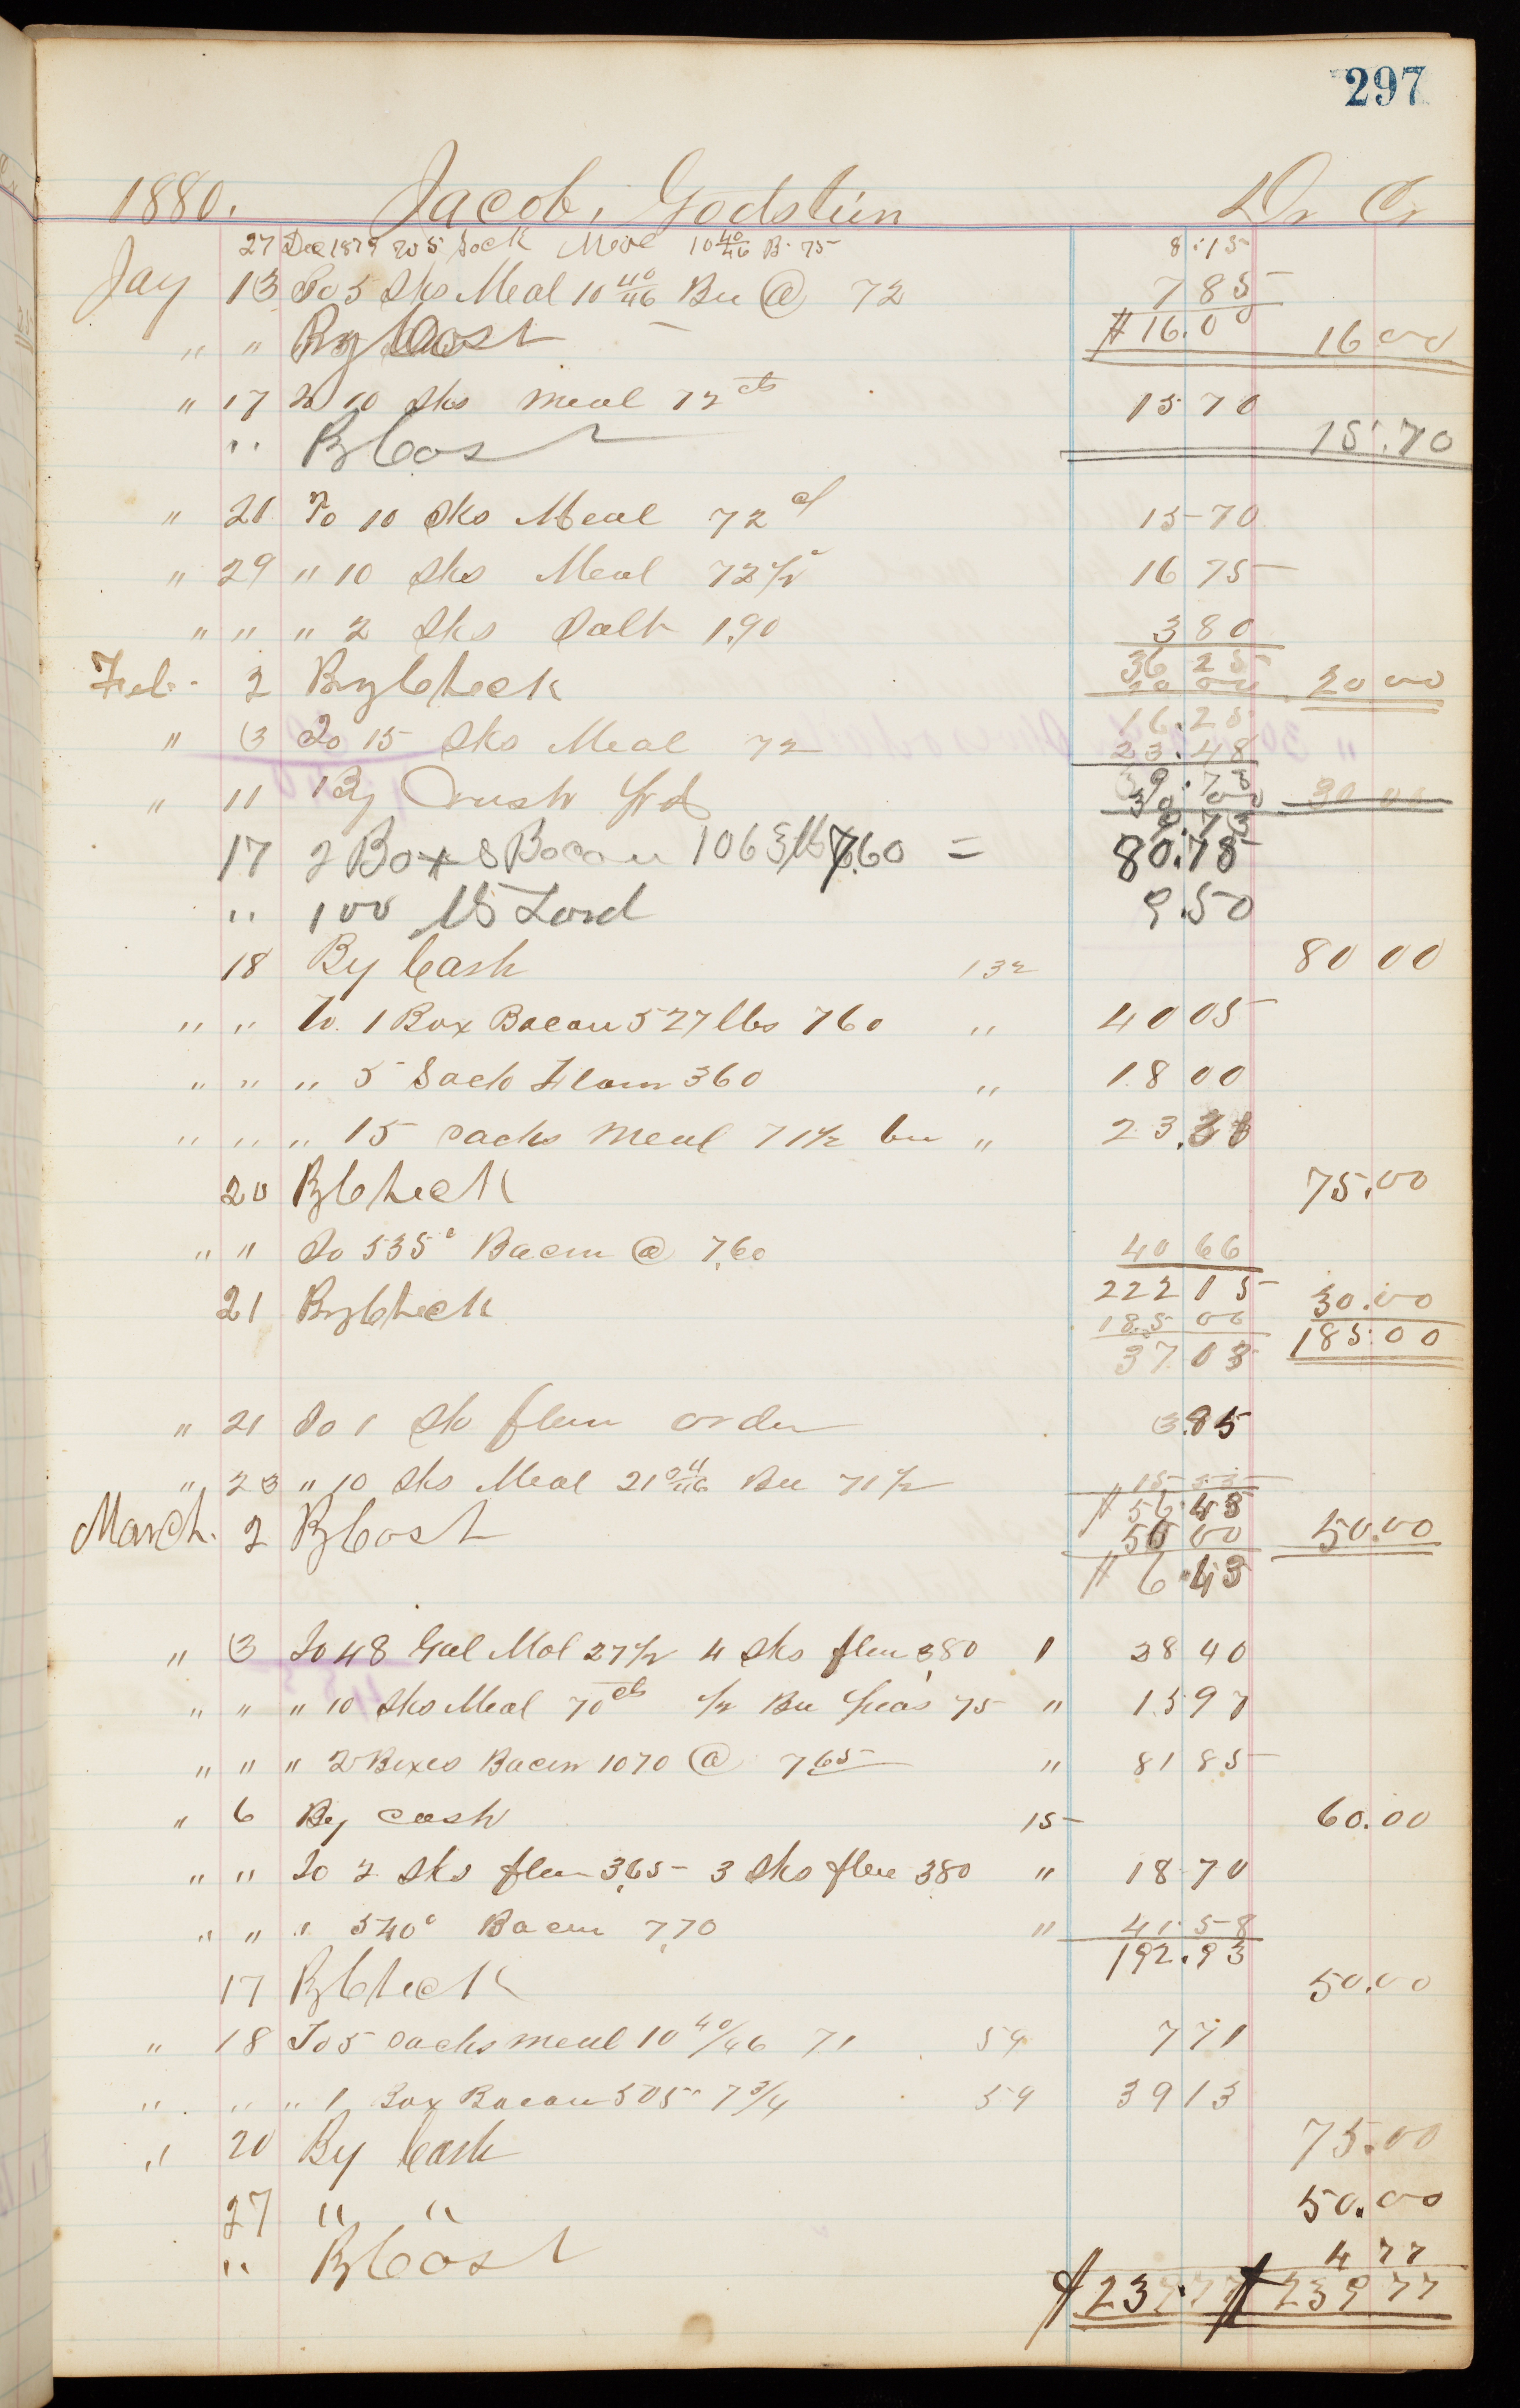 297
1880. Jacob, Godstein Dr Cr
27 Dec 1879 To 5 Sack Meal 10 40/46 B. 75 8.15
Jay 13 To 5 Sks Meal 10 40/46 Bu @ 72 7 85
" " By Cash $16.00 16 00
" 17 To 10 Sks Meal 72 cts 15 70
" By Cash 15.70
" 21 To 10 Sks Meal 72 c 15 70
" 29 " 10 Sks Meal 72 1/2 c 16 75
" " " 2 Sks Salt 1.90 3 80
36 25
Feb. 2 By Check 20 00 20 00
16.25
" 3 To 15 Sks Meal 72 23.48
39.73
" 11 By Cash 30 00 30 00
9.73
17 2 Boxes Bacon 1063 lbs 7.60 = 80.78
" 100 lbs Lard 9.50
18 By Cash 132 80 00
" " To 1 Box Bacon 527 lbs 760 " 40 05
" " " 5 Sack Flour 360 " 18 00
" " " 15 sacks meal 71 1/2 bu " 23.
20 By Check 75.00
" " To 535 c Bacon @ 7.60 40 66
222 15
21 By Check 30.00
185 00 185.00
37 13
" 21 To 1 Sk flour order 3.85
" 23 " 10 Sks Meal 21 Bu 71 1/2 15
$ 56.43
March. 2 By Cash 50 00 50.00
$ 6.43
" 3 To 48 Gal Mol 27 1/2 4 Sks flour 3.80 1 28 40
" " " 10 Sks Meal 70 cts 1/2 Bu Peas 75 " 15 97
" " " 2 Boxes Bacon 1070 @ 7 65 " 81 85
" 6 By cash 15 60.00
" " To 2 Sks flour 3.65 3 Sks flour 380 " 18 70
" " " 540 c Bacon 7.70 " 41.58
192.93
17 By Check 50.00
" 18 To 5 sacks meal 10 40/46 71 59 7 71
" " " 1 Box Bacon 505 7 3/4 59 39 13
" 20 By Cash 75.00
27 " " 50.00
" By Cash 4 77
$ 239.77 $ 239 77